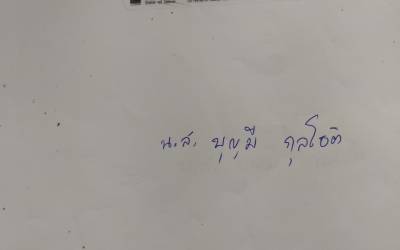 น.ส. บุญมี กุลโชติ